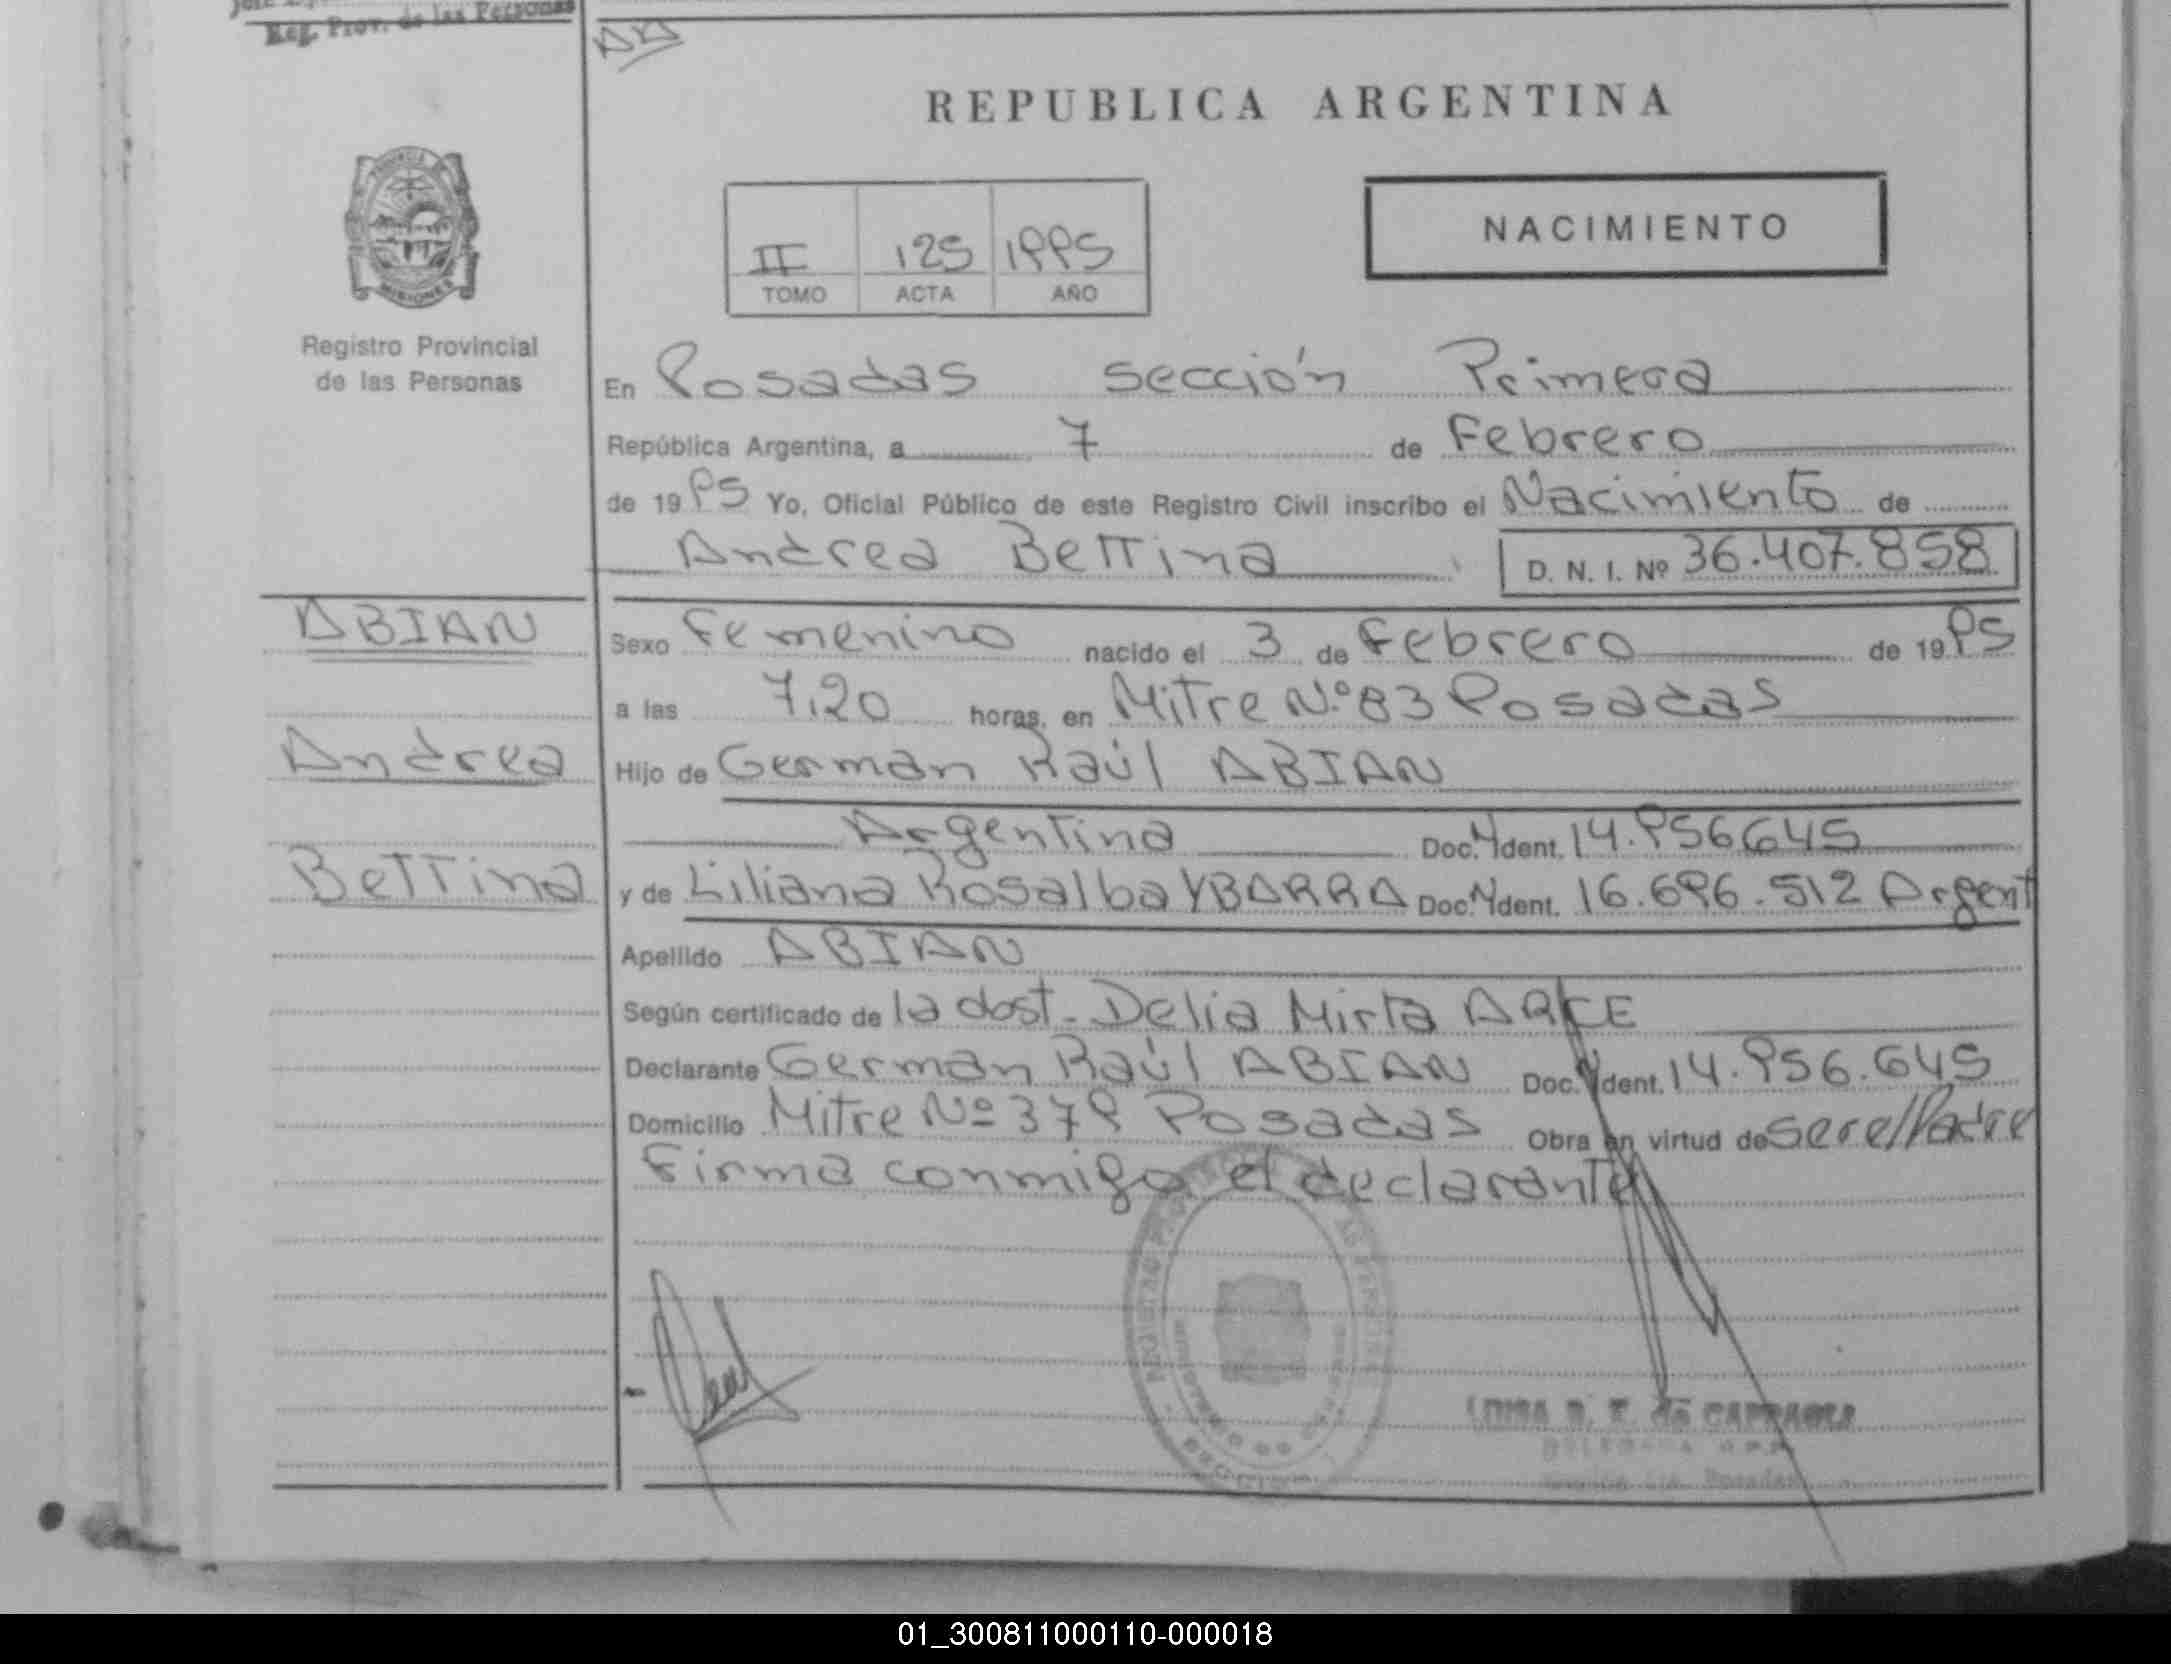 Reg. Prov. de las Personas
REPUBLICA ARGENTINA
NACIMIENTO
II 125 1995
TOMO ACTA AÑO
PROVINCIA
MISIONES
Registro Provincial
de las Personas
En Posadas sección Primera
República Argentina, a 7 de Febrero
de 1995 Yo, Oficial Público de este Registro Civil inscribo el Nacimiento de
Andrea Bettina D. N. I. Nº 36.407.858
ABIAN
Andrea
Bettina
Sexo Femenino nacido el 3 de Febrero de 1995
a las 7,20 horas, en Mitre N.º 83 Posadas
Hijo de German Raúl ABIAN
Argentina Doc. Ident. 14.956645
y de Liliana Rosalba YBARRA Doc. Ident. 16.696.512 Argent
Apellido ABIAN
Según certificado de la obst. Delia Mirta ARCE
Declarante German Raúl ABIAN Doc. Ident. 14.956.645
Domicilio Mitre Nº 379 Posadas Obra en virtud de ser el Padre
Firma conmigo el declarante
LUISA de
Posadas
01_300811000110-000018